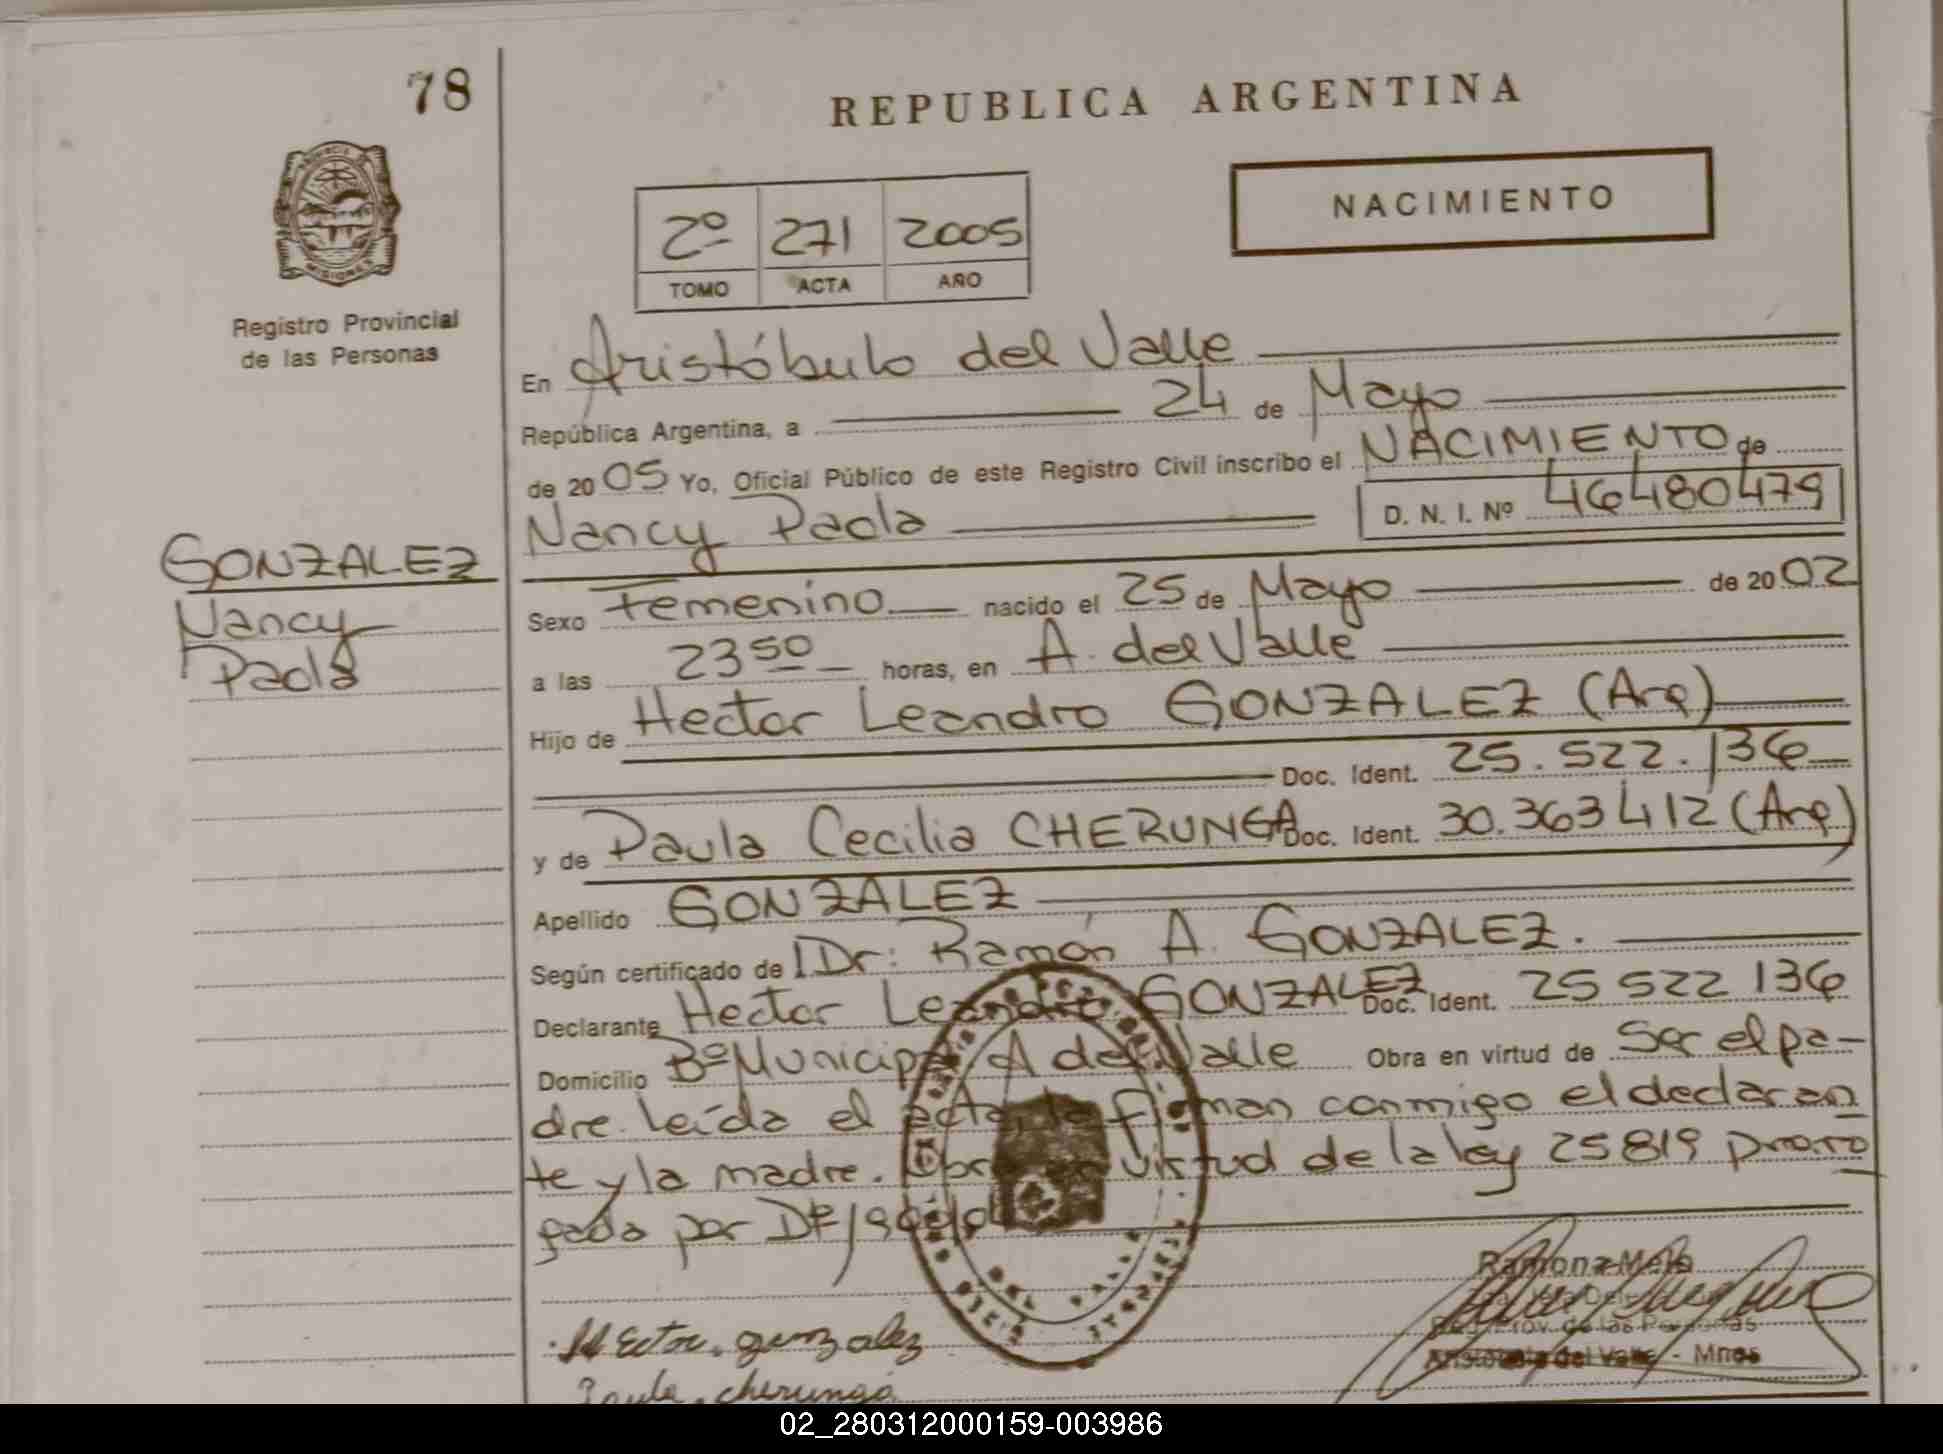 78
REPUBLICA ARGENTINA
NACIMIENTO
2º 271 2005
TOMO ACTA AÑO
MISIONES
Registro Provincial
de las Personas
En Aristóbulo del Valle
República Argentina, a 24 de Mayo
de 2005 Yo, Oficial Público de este Registro Civil inscribo el NACIMIENTO de
Nancy Paola D. N. I. Nº 46480479
GONZALEZ
Nancy
Paola
Sexo Femenino nacido el 25 de Mayo de 2002
a las 23 50 horas, en A. del Valle
Hijo de Hector Leandro GONZALEZ (Arg)
Doc. Ident. 25.522.136
y de Paula Cecilia CHERUNGA Doc. Ident. 30.363412 (Arg)
Apellido GONZALEZ
Según certificado de Dr: Ramón A. GONZALEZ.
Declarante Hector Leandro GONZALEZ Doc. Ident. 25 522 136
Domicilio Bº Municipal A del Valle Obra en virtud de Ser el pa-
dre. Leída el acta, la firman conmigo el declaran
te y la madre. virtud de la ley 25819 prorro
gada por
Ramona
Reg. Prov. de las Personas
Aristóbulo del Valle - Mnes
Hector. gonzalez
Paula. cherunga
02_280312000159-003986